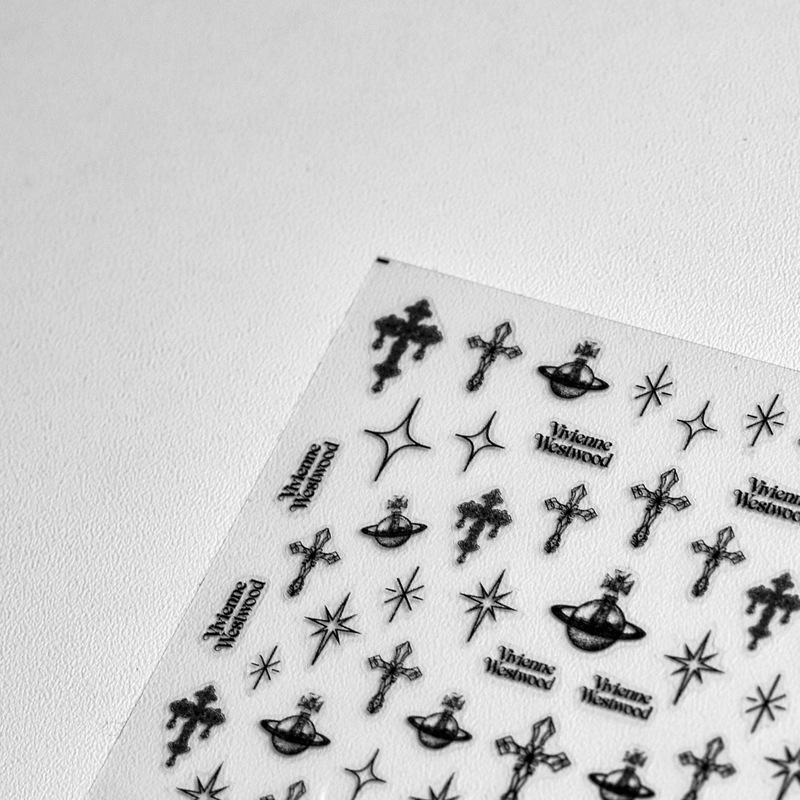 Vivienne
Westwood
Vivienne
Westwood
Vivienne
Westwood
Vivienne
Westwood
Vivienne
Westwood
Vivienne
Westwood